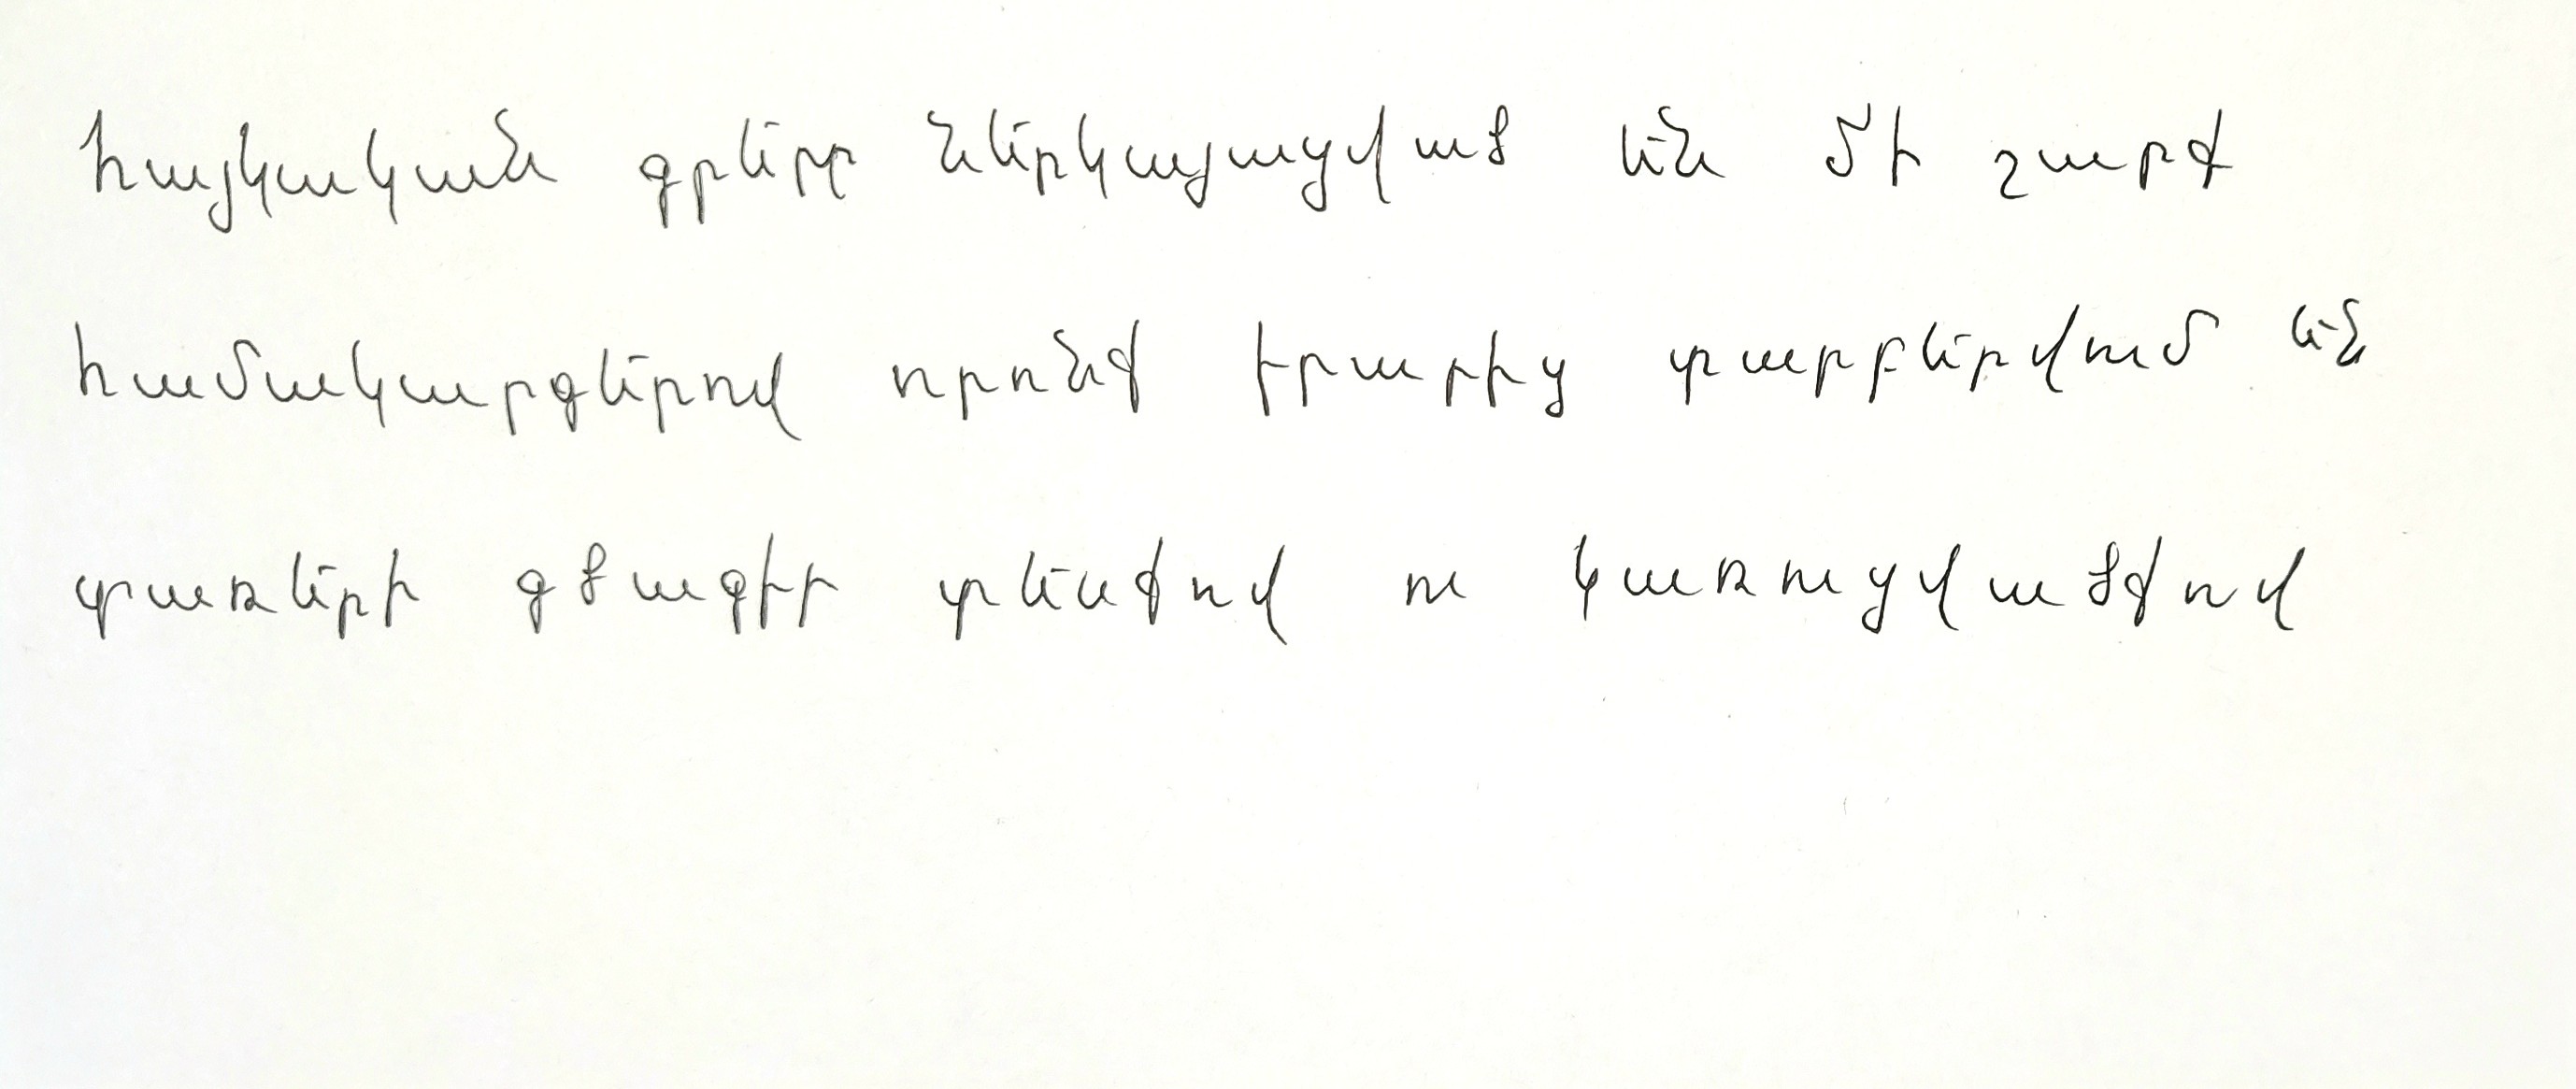 հայկական գրերը ներկայացված են մի շարք
համակարգերով որոնք իրարից տարբերվում են
տառերի գծագիր տեսքով ու կառուցվածքով